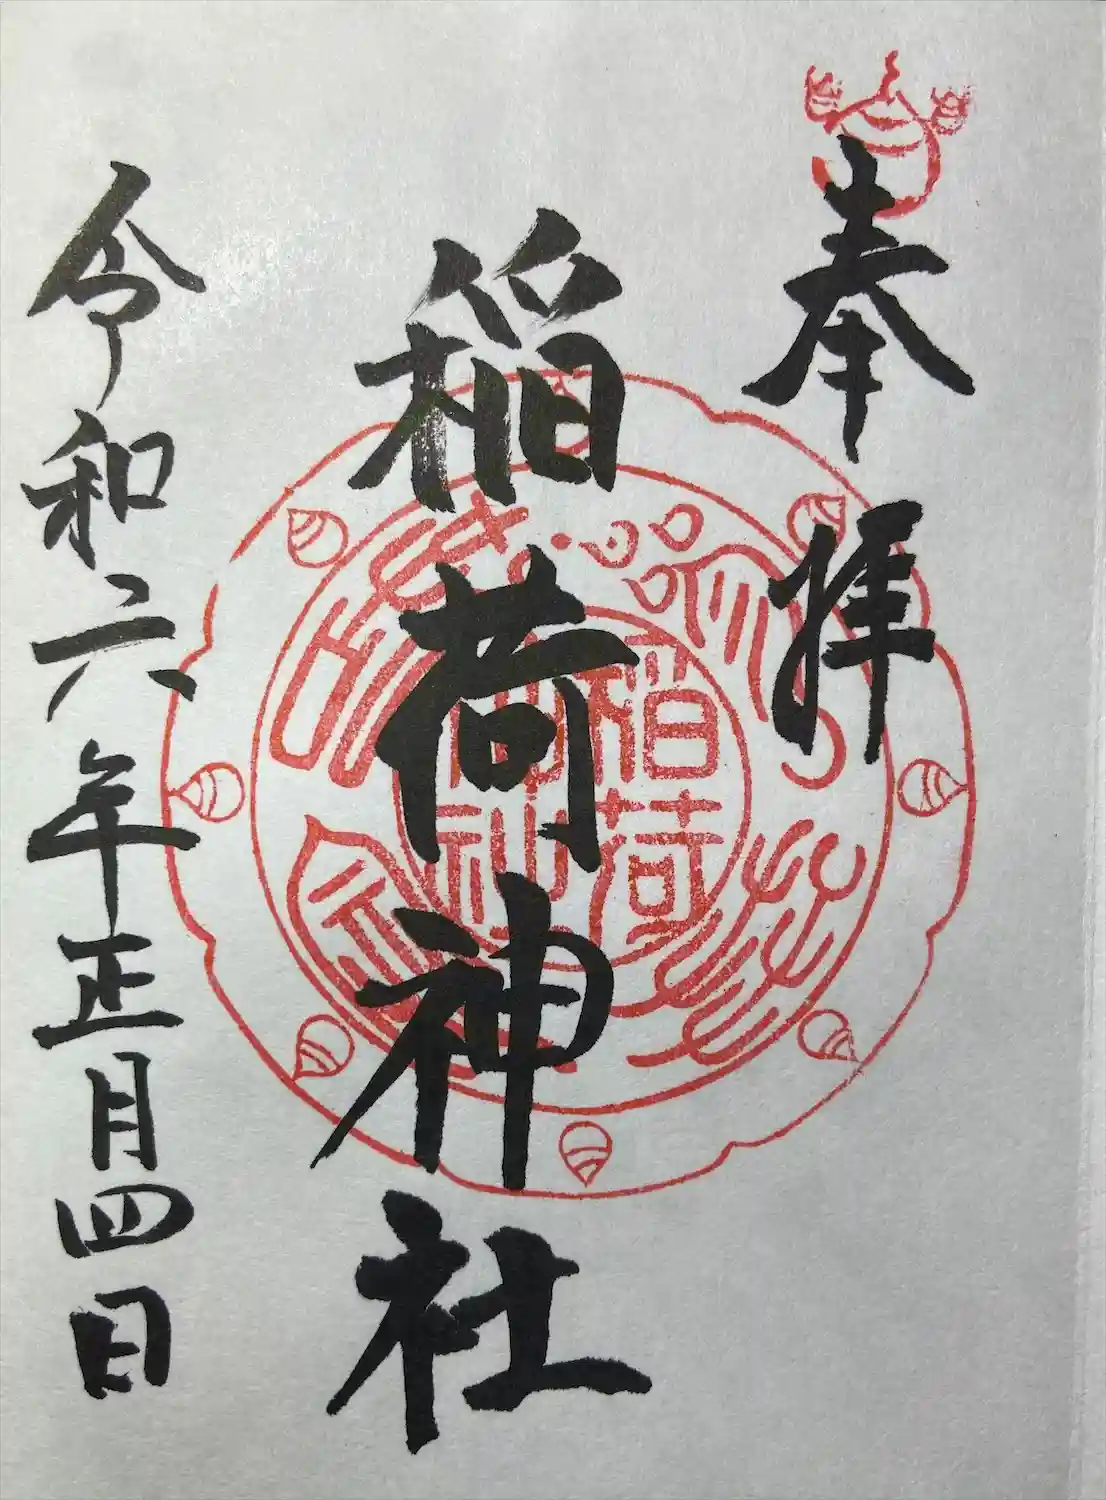 奉拝
稲荷神社
令和六年正月四日
稲荷
神社